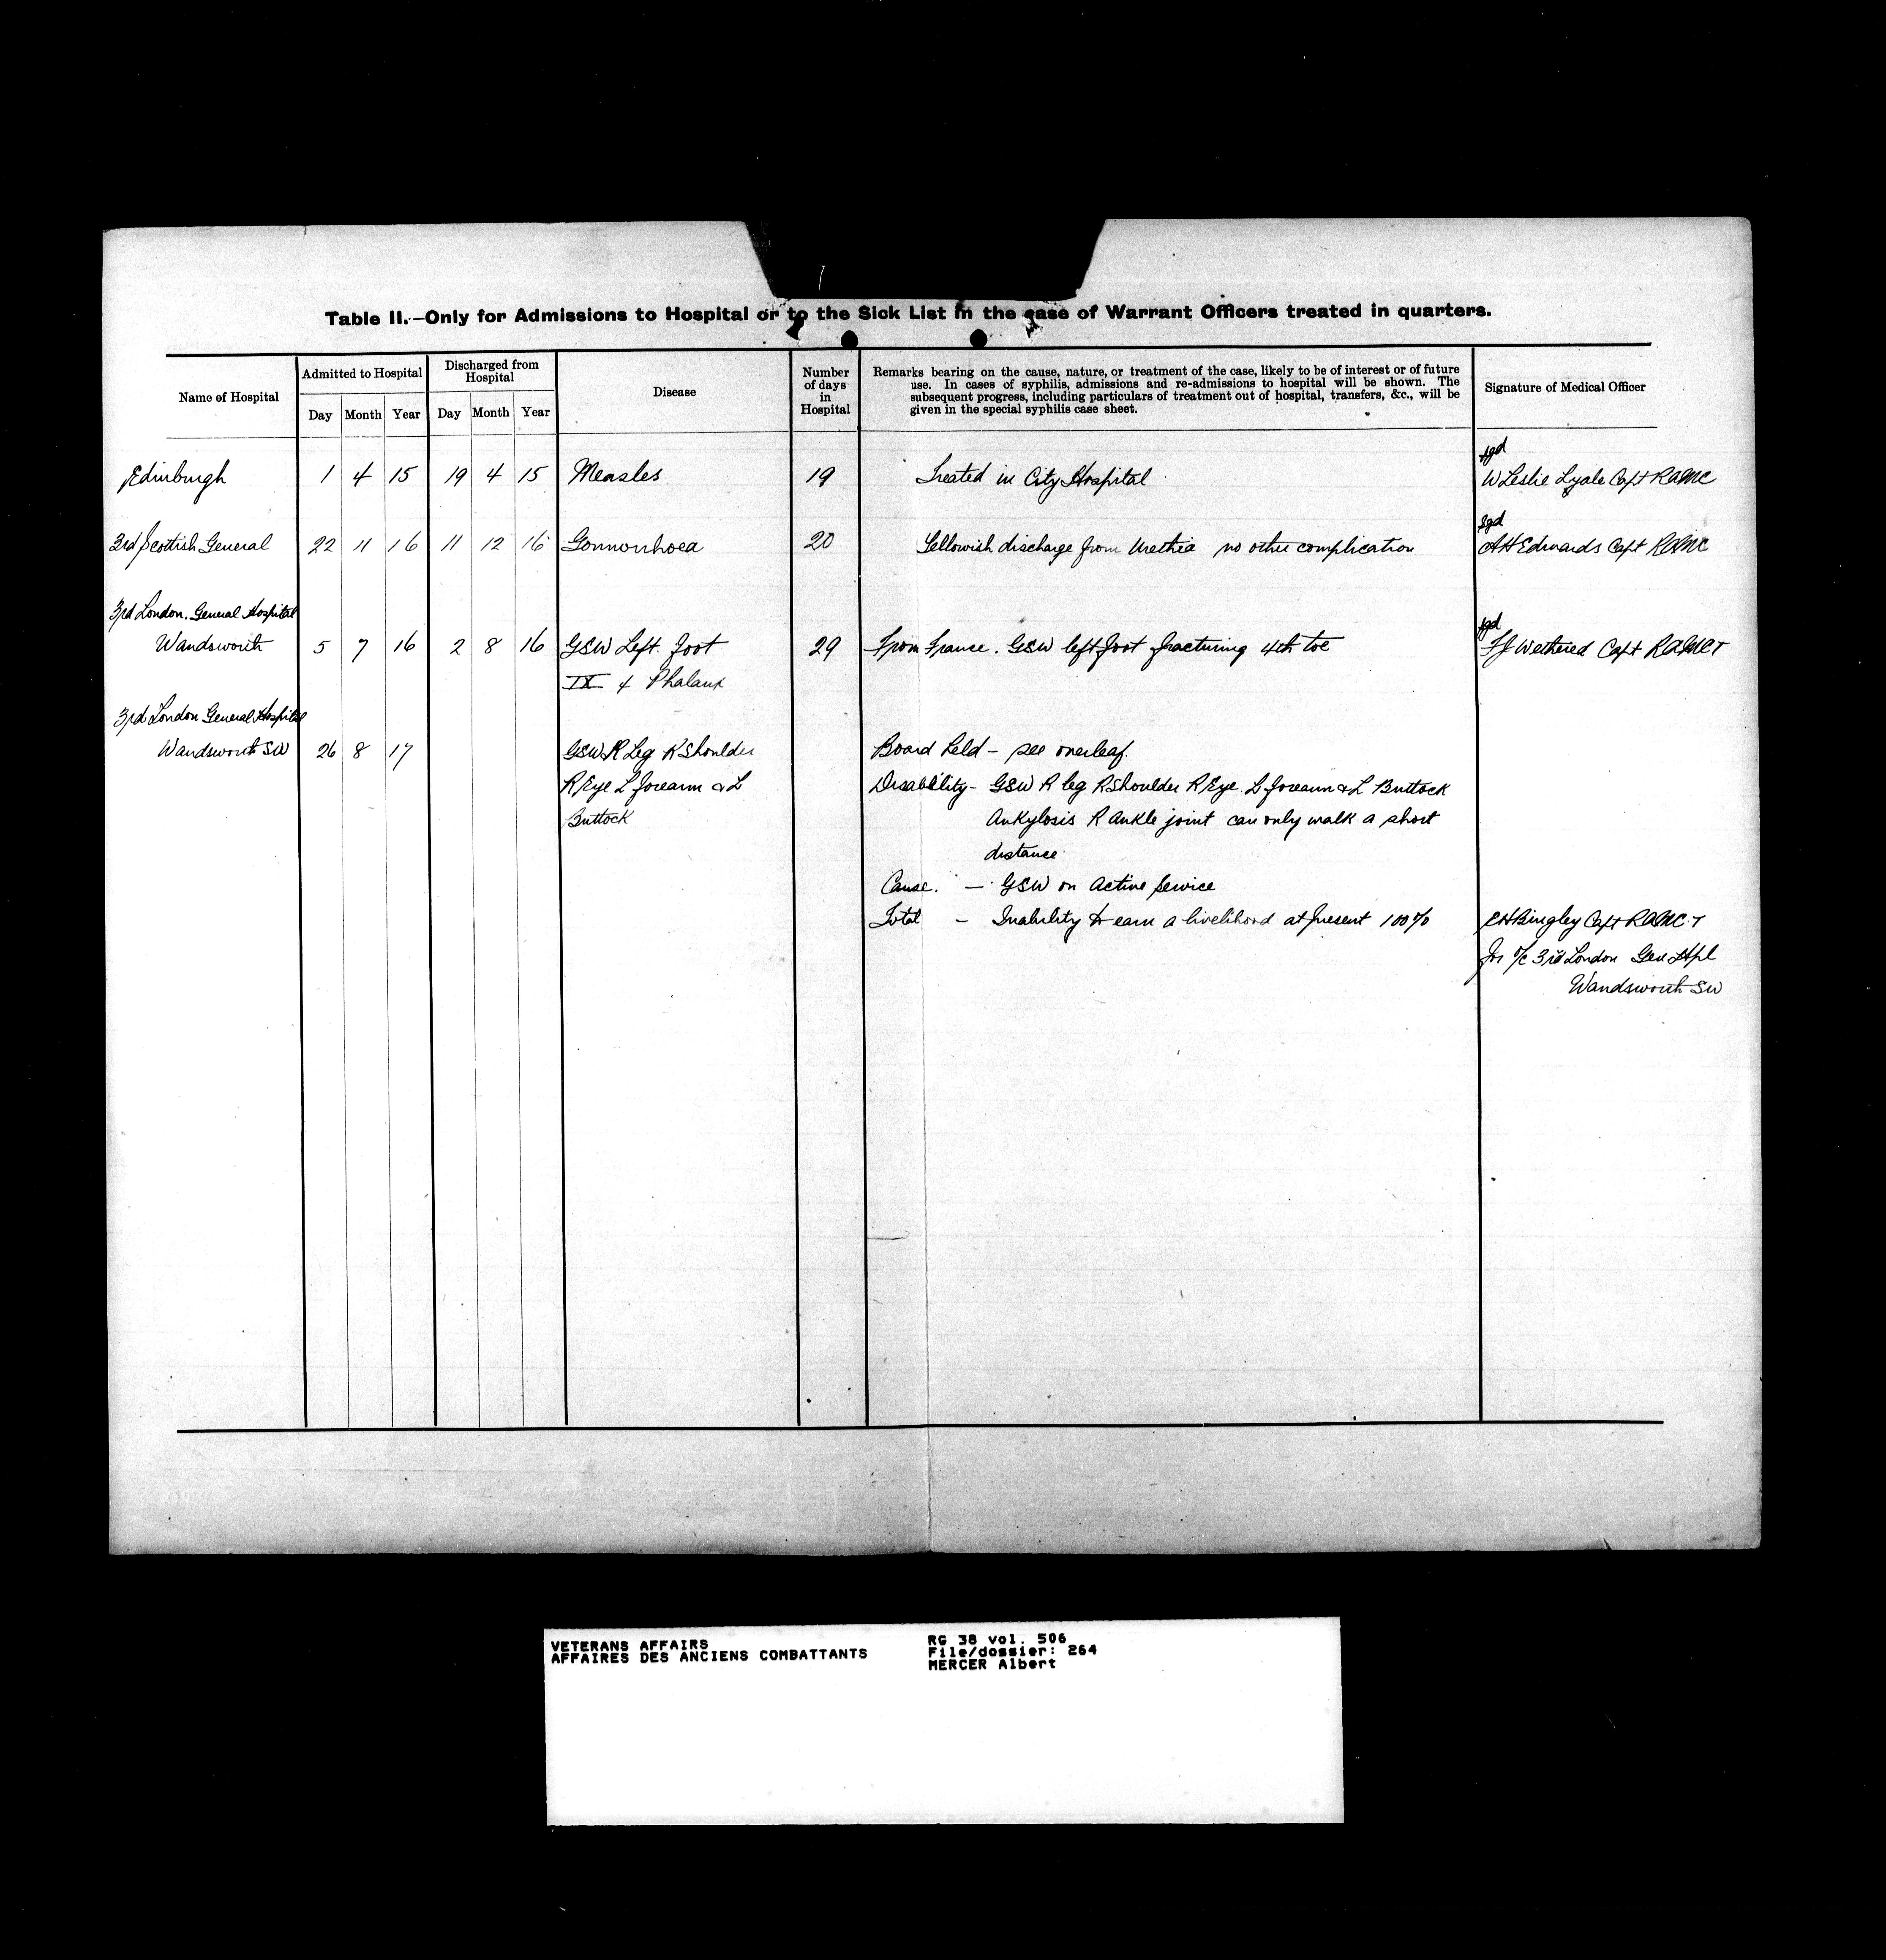 Table II.—Only for Admissions to Hospital or to the Sick List in the case of Warrant Officers treated in quarters.
Name of Hospital
Admitted to Hospital
Discharged from
Hospital
Disease
Number
of days
in
Hospital
Remarks bearing on the cause, nature, or treatment of the case, likely to be of interest or of future
use. In cases of syphilis, admissions and re-admissions to hospital will be shown. The
subsequent progress, including particulars of treatment out of hospital, transfers, &c., will be
given in the special syphilis case sheet.
Signature of Medical Officer
Day Month Year Day Month Year
sgd
Edinburgh 1 4 15 19 4 15 Measles 19 Treated in City Hospital W Leslie Lyale Capt RAMC
sgd
3rd Scottish General 22 11 16 11 12 16 Gonnorrhoea 20 Yellowish discharge from Urethra no other complication AH Edwards Capt RAMC
3rd London. General Hospital
sgd
Wandsworth 5 7 16 2 8 16 GSW Left foot 29 From France. GSW left foot fracturing 4th toe FJ Wethered Capt RAMCT
IX 4 Phalanx
3rd London General Hospital
Wandsworth SW 26 8 17 GSW R Leg R Shoulder Board held – see overleaf.
R Eye L forearm & L Disability - GSW R leg R Shoulder R Eye L forearm & L Buttock
Buttock Ankylosis R Ankle joint can only walk a short
distance
Cause. – GSW on Active Service
Total – Inability to earn a livelihood at present 100% EH Bingley Capt RAMC T
for o/c 3rd London Gen Hpl
Wandsworth SW
VETERANS AFFAIRS
AFFAIRES DES ANCIENS COMBATTANTS
RG 38 vol. 506
File/dossier: 264
MERCER Albert